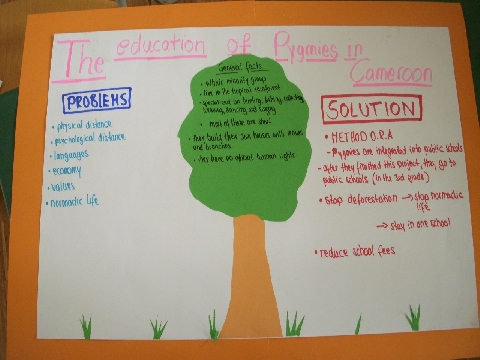 The education of Pygmies in
Cameroon
PROBLEMS
• physical distance
• psychological distance
• languages
• economy
• values
• normadic life
General facts
• ethnic minority group
• live in the tropical rainforest
• specialized on hunting, fishing, collecting
dancing and singing
• most of them are short
• They build their own houses with leaves
and branches
• They have no global human rights
SOLUTION
• METHOD O.R.A
- Pygmies are integrated into public schools
- after they finished this project, they go to
public schools (in the 3rd grade)
• stop deforestation → stop normadic
life
→ stay in one school
• reduce school fees